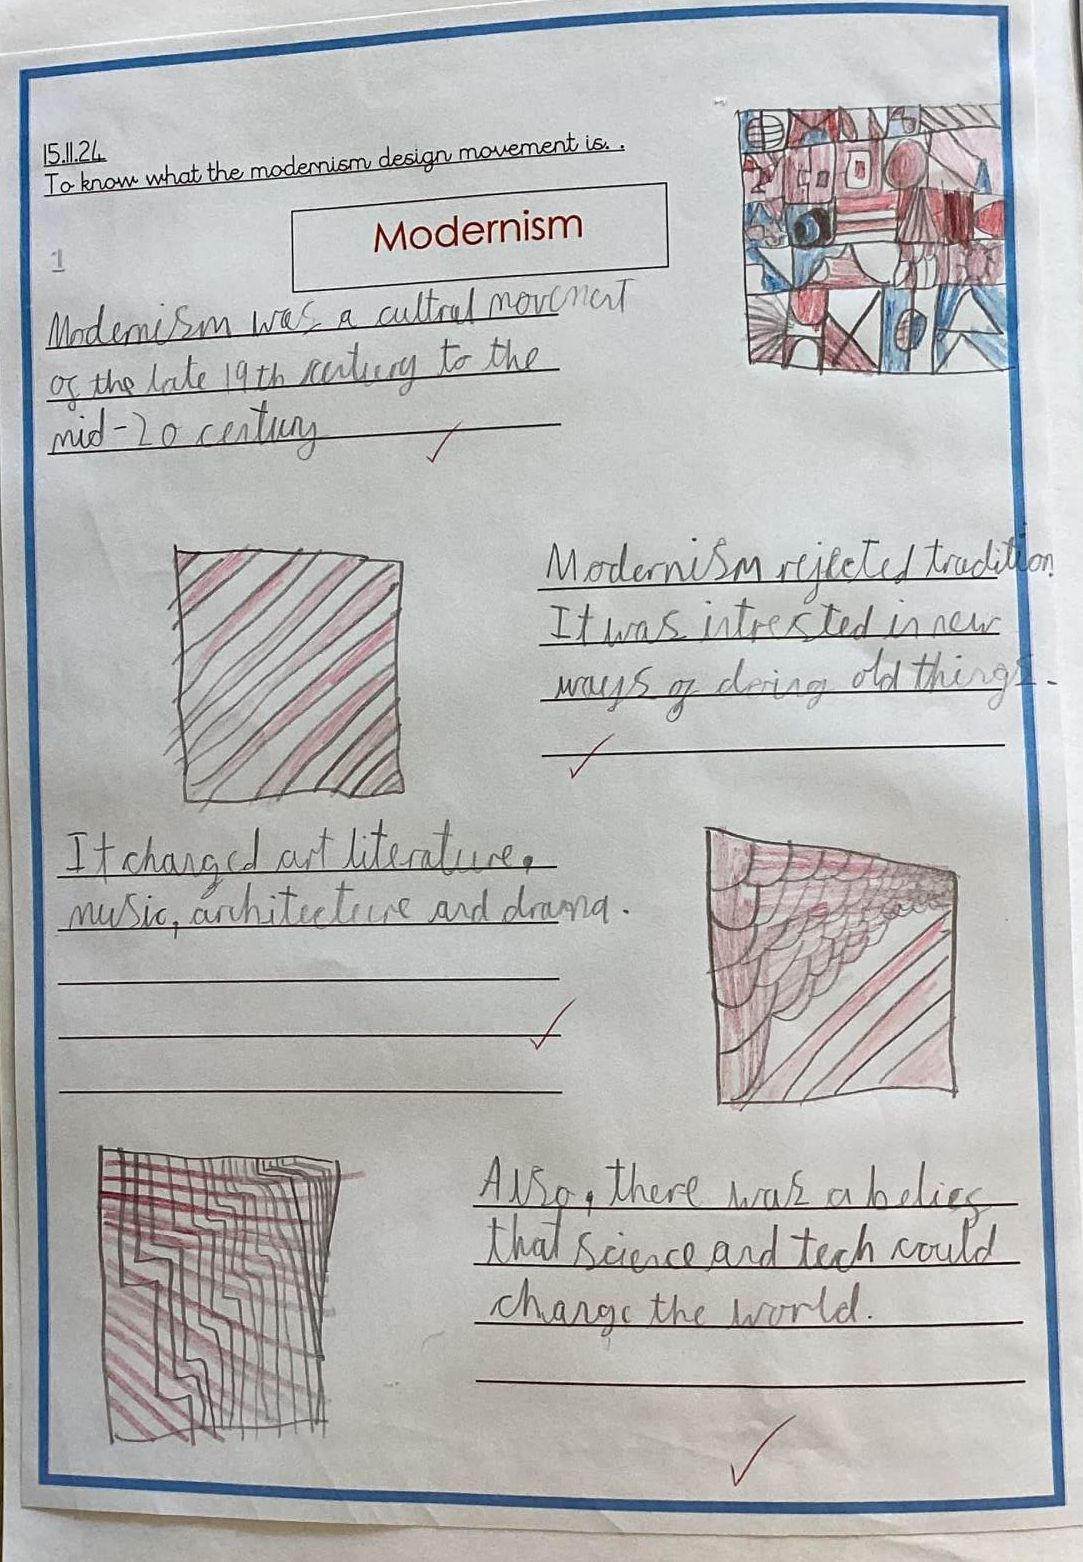 15.11.24
To know what the modernism design movement is. .
Modernism
1
Modernism was a cultral movement
of the late 19th century to the
mid-20 century
Modernism rejected tradition
It was intrested in new
ways of doing old things.
It changed art literature,
music, architecture and drama.
Also, there was a belief
that science and tech could
change the world.